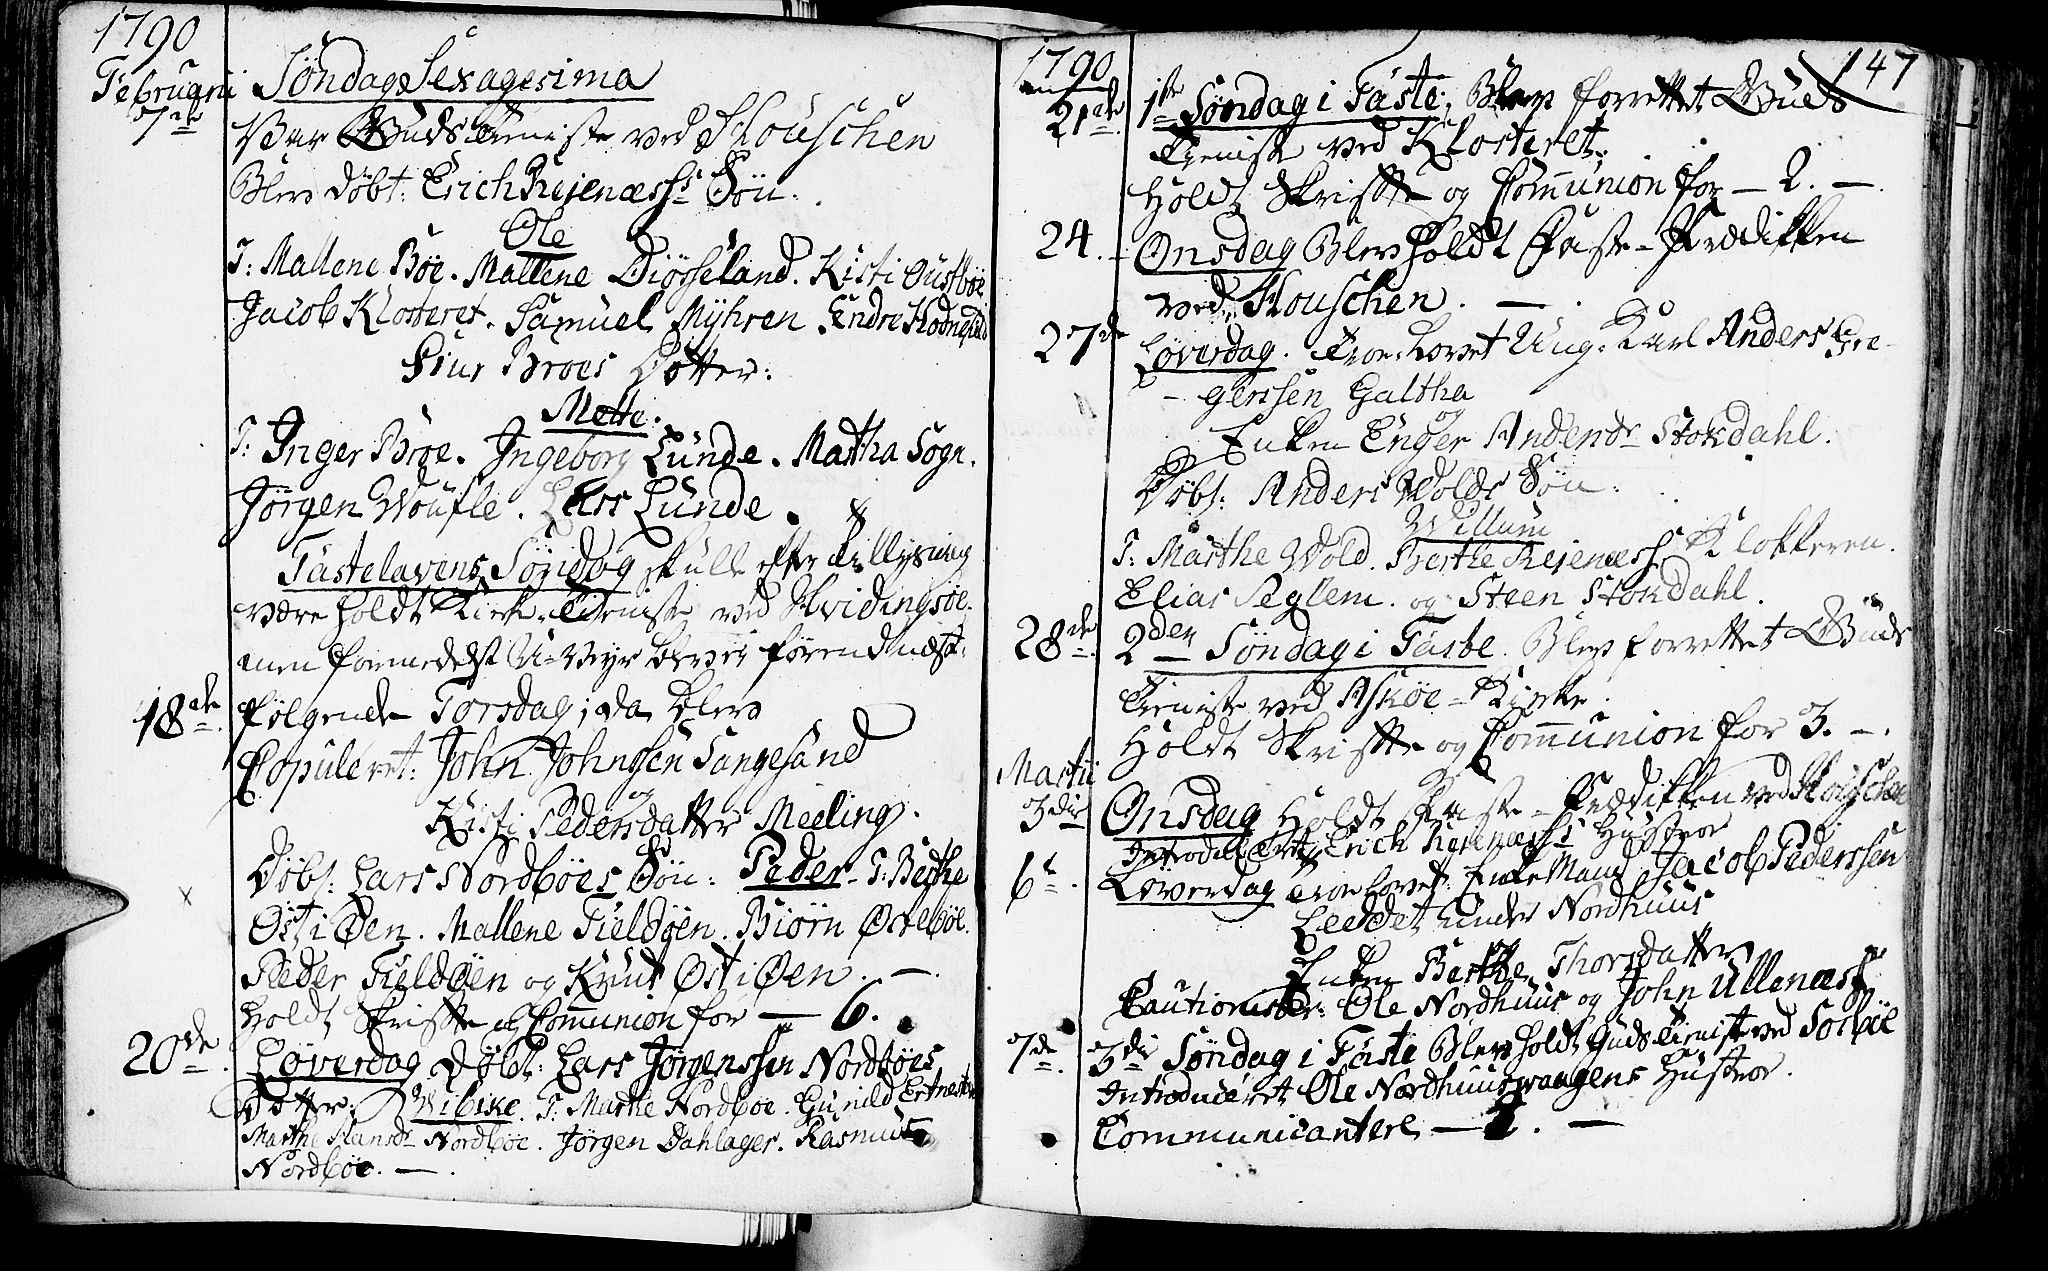 1790
Februarii Søndag Sexagesima
7de Var Guds Tieniste ved Houschen
Blev døbt: Erich Reienæss Søn.
Ole
T: Mallene Bøe. Mallene Diøsseland. Kisti Oustbøe
Jacob Klosteret. Samuel Mÿhren Endre Hodnefield
Siur Broes Dotter:
Mette.
T: Inger Broe. Ingeborg Lunde. Martha Sogn.
Jørgen Woufle. Lars Lunde.
Fastelavens Søndag skulle efter Tillysning
være holdt Kirke-Tieniste ved Hvidingsøe
men formedelst U-Veyr blev ei førend næst-
18de følgende Torsdag; da blev
Copuleret: John Johnssen Sangesand
og
Kisti Pedersdatter Meeling.
Døbt: Lars Nordbøes Søn: Peder. T: Berthe
Øst i Øen. Mallene Fieldøen. Biørn Ørebøe.
Peder Fieldøen og Knut Øst i Øen. —
Holdt Skrifte og Communion for — 6.
20de Løverdag døbt: Lars Jørgenssen Nordbøes
Dotter: Wibike. T. Marthe Nordbøe. Gunild
Marthe Hansdr Nordbøe. Jørgen Dahlager. Rasmus
Nordbøe. —
147
1790
21de 1ste Søndag i Faste. Blev forrettet Guds
Tieniste ved Klosteret.
Holdt Skrifte og Communion for — 2. —
24. Onsdag Blev holdt Faste-Prædikken
ved Houschen. —
27de Løverdag. Trovlovet Ung-Karl Anders Gre-
-gerssen Galtha
og
Enken Enger Andersdr Stokdahl.
Døbt: Anders Wolds Søn:
Willum
T: Marthe Wold. Berthe Reienæss Klokkeren.
Elias Seglem. og Steen Stokdahl.
28de 2den Søndag i Faste. Blev forrettet Guds
Tieniste ved Askøe-Kirke.
Holdt Skrifte og Communion for 3. —.
Martii
3die Onsdag Holdt Faste-Prædikken ved Houschen
Introduceret Erich Reienæss Hustroe
6te. Løverdag Trovlovet: Enke Mand Jacob Pederssen
Leedet under Nordhuus
Enken Berthe Thorsdatter
Cautionister: Ole Nordhuus og John Ullenæss
7de. 3die Søndag i Faste Blev holdt Guds Tieniste ved Sørbøe
Introduceret Ole Nordhuusvaagens Hustroe.
Communicantere — 1. —